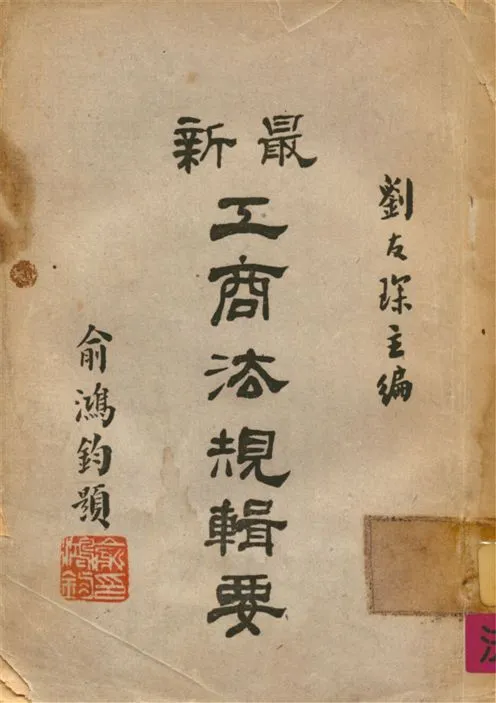 劉友琛主編
最新
工商法規輯要
俞鴻鈞題
俞鴻鈞印
法